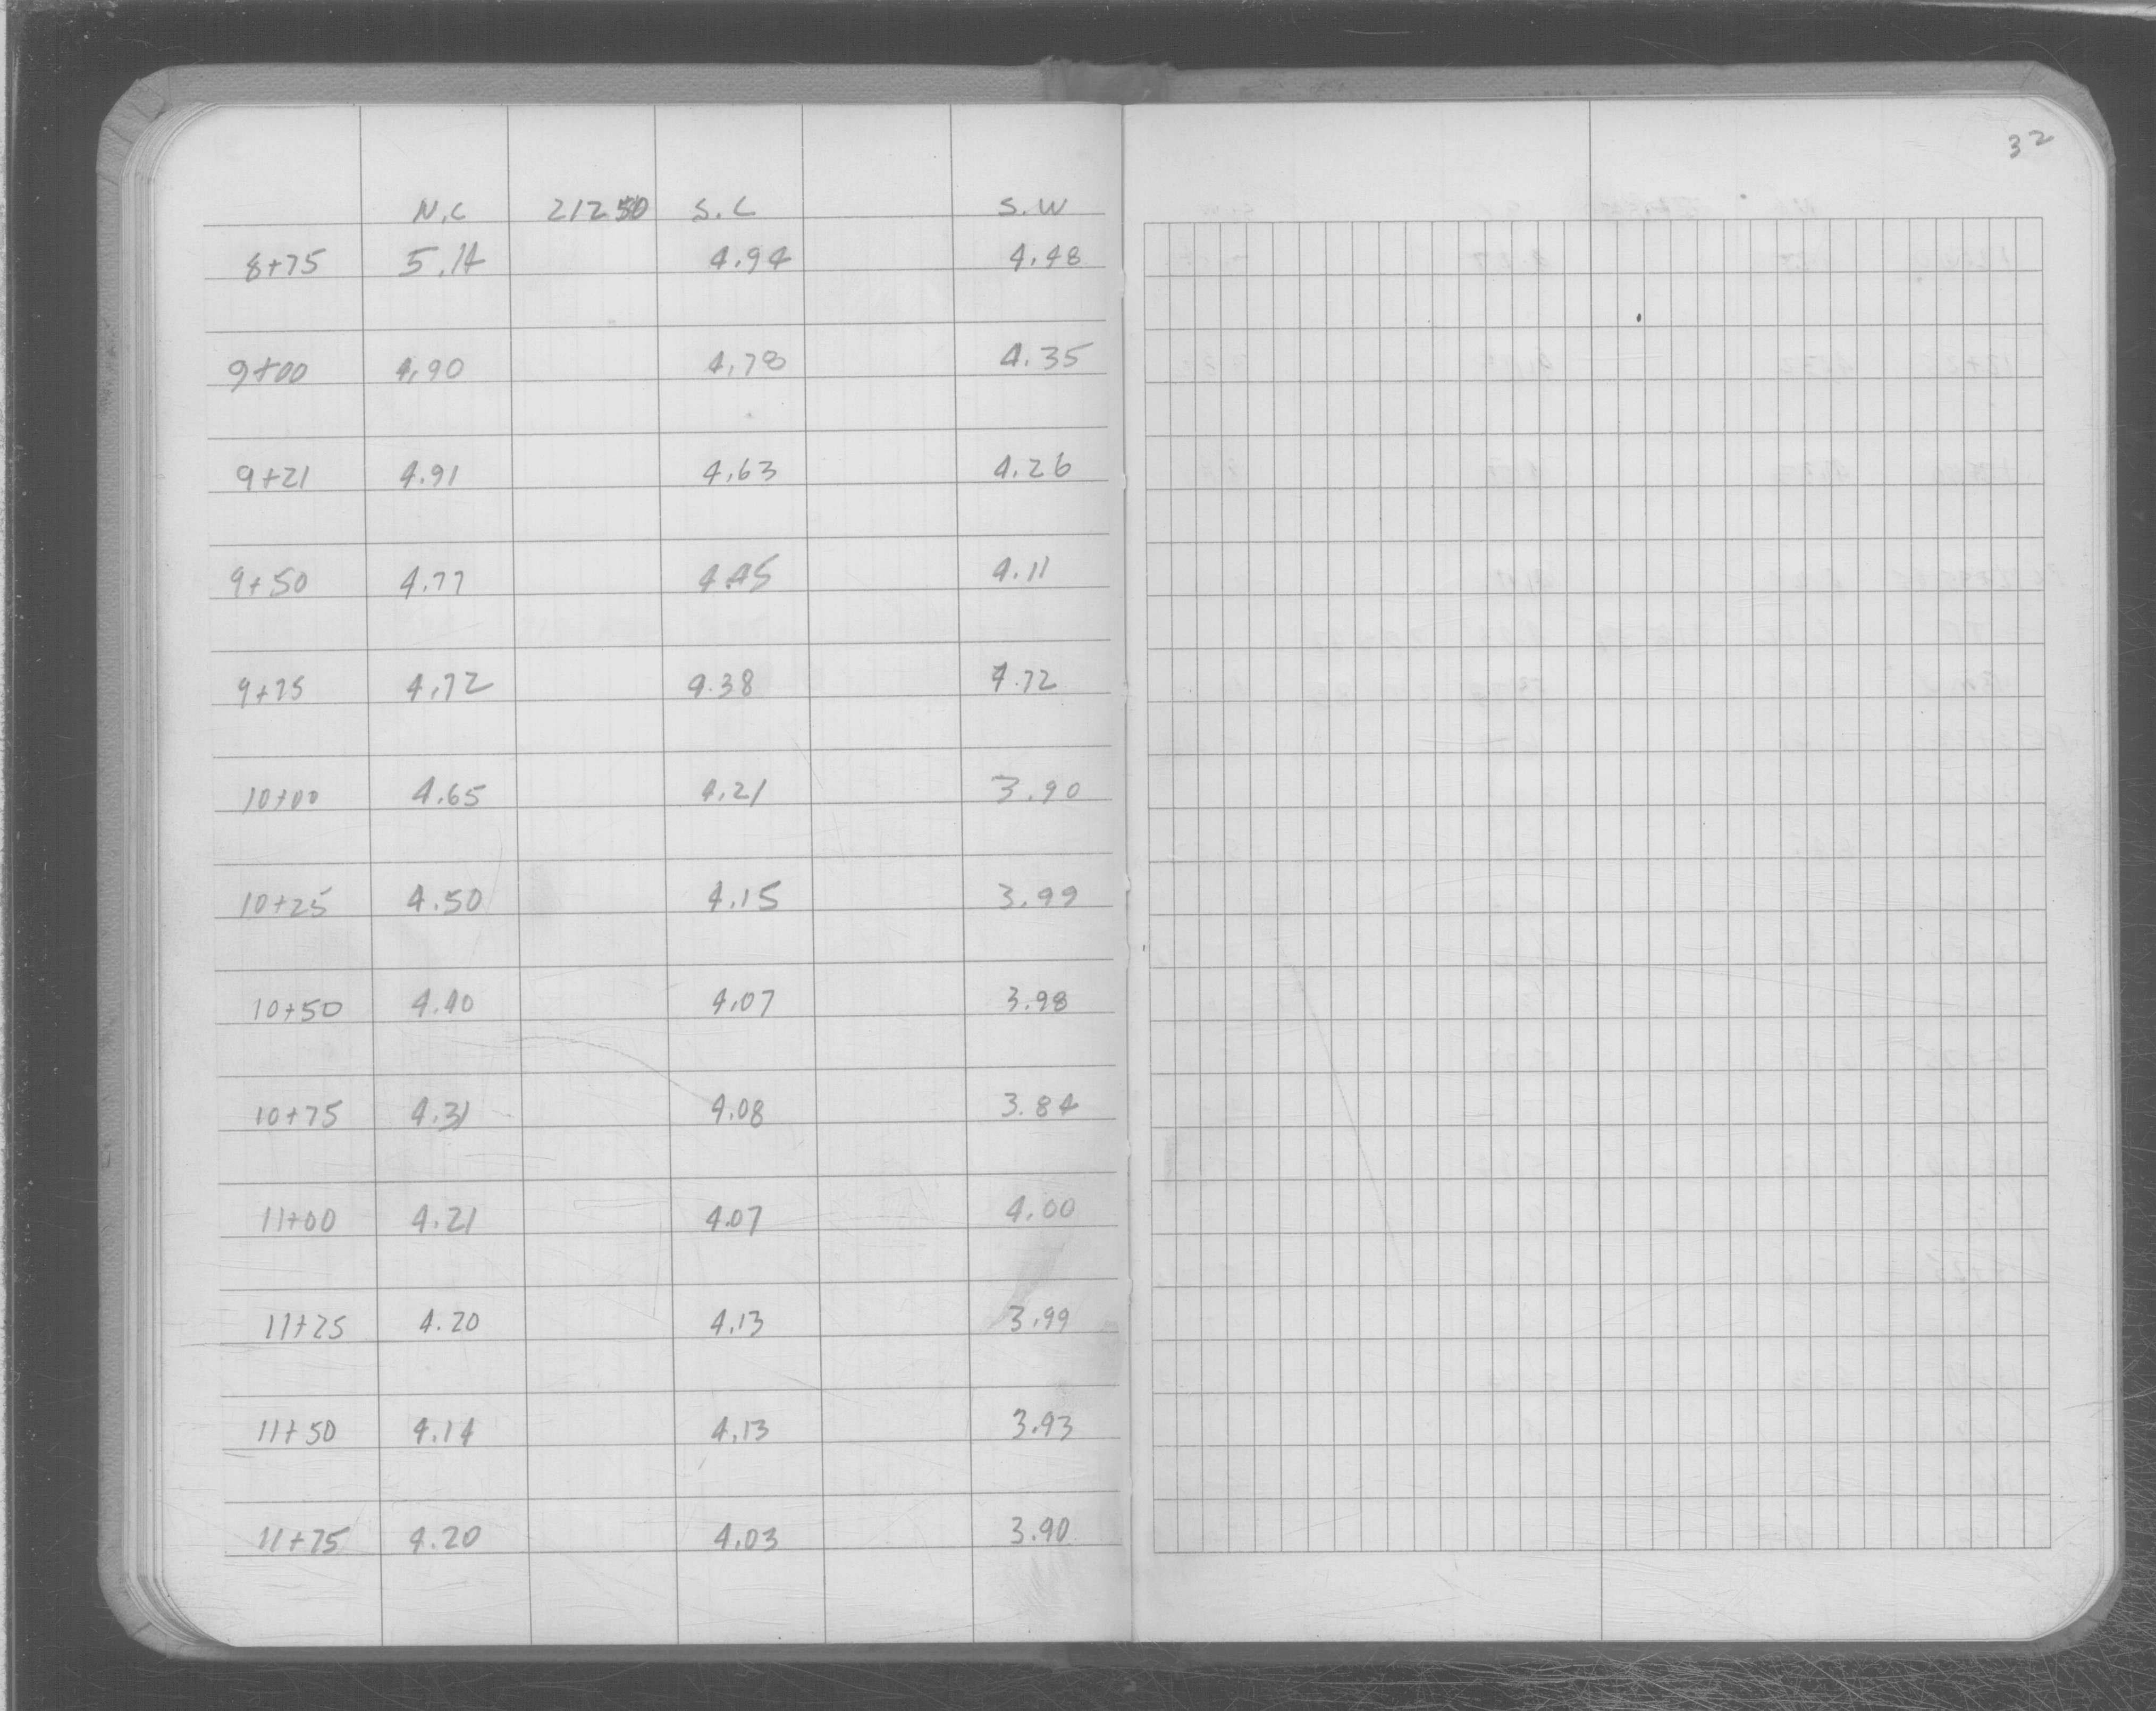 32
N.C 21250 S.C S.W
8+75 5.14 4.94 4.48
9+00 4.90 4.78 4.35
9+21 4.91 4.63 4.26
9+50 4.77 4.45 4.11
9+75 4.72 4.38 4.72
10+00 4.65 4.21 3.90
10+25 4.50 4.15 3.99
10+50 4.40 4.07 3.98
10+75 4.31 4.08 3.84
11+00 4.21 4.07 4.00
11+25 4.20 4.13 3.99
11+50 4.14 4.13 3.93
11+75 4.20 4.03 3.90